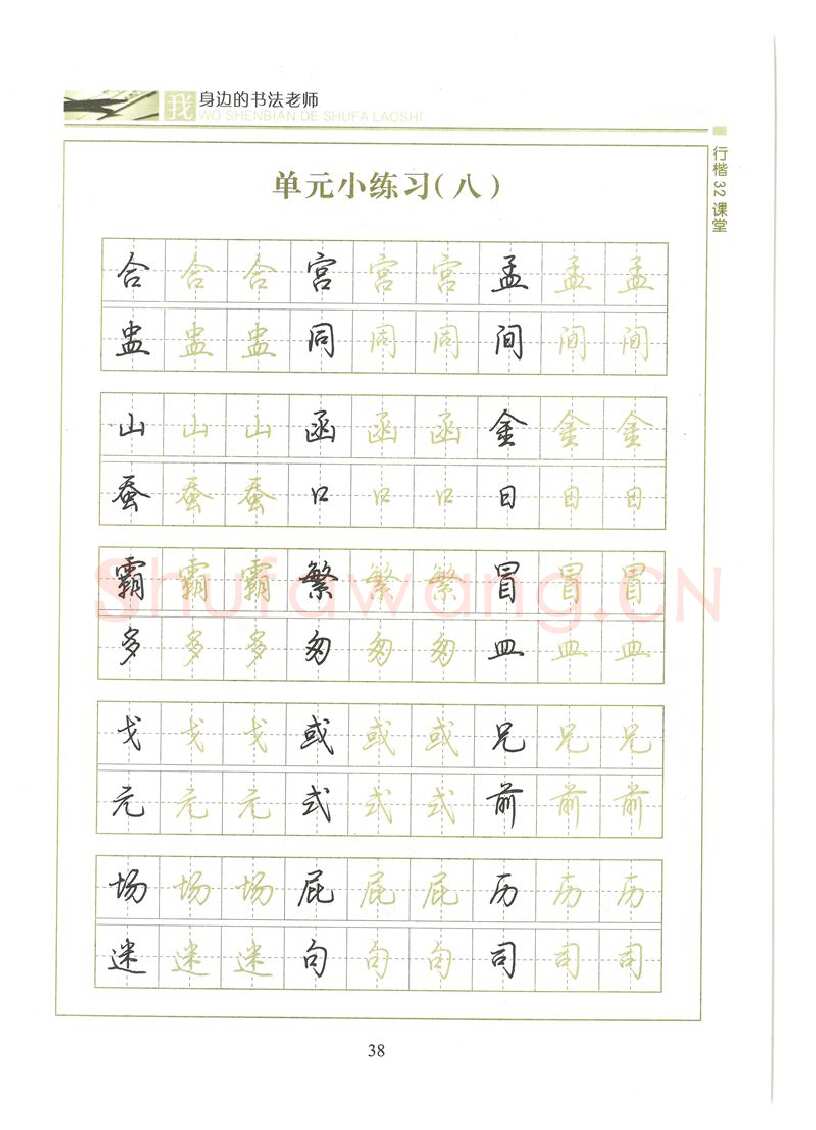 我身边的书法老师
WO SHENBIAN DE SHUFA LAOSHI
行楷32课堂
单元小练习(八)
合合合宫宫宫孟孟孟
盅盅盅同同同间间间
山山山函函函金金金
蚕蚕蚕口口口日日日
霸霸霸繁繁繁冒冒冒
多多多匆匆匆皿皿皿
戈戈戈或或或兄兄兄
元元元式式式前前前
场场场屁屁屁历历历
迷迷迷句句句司司司
Shufawang.CN
38